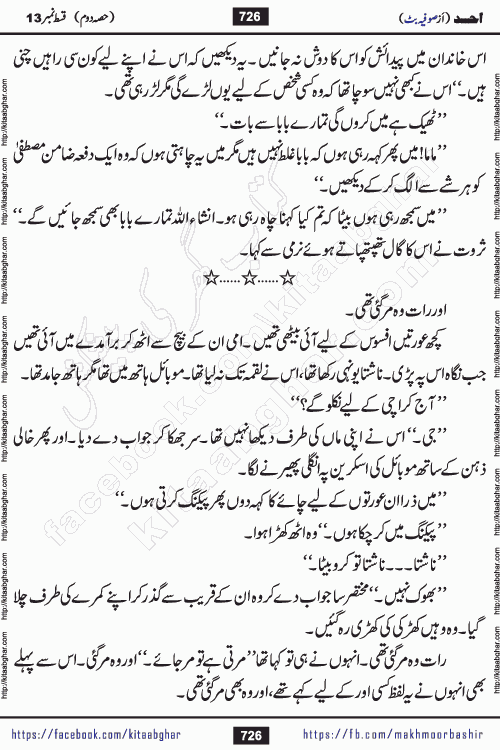 احد (از صوفیہ بٹ) 726 (حصہ دوم) قسط نمبر 13
اس خاندان میں پیدائش کو اس کا دوش نہ جانیں۔ یہ دیکھیں کہ اس نے اپنے لیے کون سی راہیں چنی
ہیں۔‘‘ اس نے کبھی نہیں سوچا تھا کہ وہ کسی شخص کے لیے یوں لڑے گی مگر لڑ رہی تھی۔
’’ٹھیک ہے میں کروں گی تمہارے بابا سے بات۔‘‘
’’ماما! میں پھر کہہ رہی ہوں کہ بابا غلط نہیں ہیں مگر میں یہ چاہتی ہوں کہ وہ ایک دفعہ ضامن مصطفیٰ
کو ہر شے سے الگ کر کے دیکھیں۔‘‘
’’میں سمجھ رہی ہوں بیٹا کہ تم کیا کہنا چاہ رہی ہو۔ انشاء اللہ تمہارے بابا بھی سمجھ جائیں گے۔‘‘
ثروت نے اس کا گال تھپتھپاتے ہوئے نرمی سے کہا۔
☆......☆......☆
اور رات وہ مر گئی تھی۔
کچھ عورتیں افسوس کے لیے آئی بیٹھی تھیں۔ امی ان کے بیچ سے اٹھ کر برآمدے میں آئی تھیں
جب نگاہ اس پہ پڑی۔ ناشتا یونہی رکھا تھا، اس نے لقمہ تک نہ لیا تھا۔ موبائل ہاتھ میں تھا مگر ہاتھ جامد تھا۔
’’آج کراچی کے لیے نکلو گے؟‘‘
’’جی۔‘‘ اس نے اپنی ماں کی طرف دیکھا نہیں تھا۔ سر جھکا کر جواب دے دیا۔ اور پھر خالی
ذہن کے ساتھ موبائل کی اسکرین پہ انگلی پھیرنے لگا۔
’’میں ذرا ان عورتوں کے لیے چائے کا کہہ دوں پھر پیکنگ کرتی ہوں۔‘‘
’’پیکنگ میں کر چکا ہوں۔‘‘ وہ اٹھ کھڑا ہوا۔
’’ناشتا۔۔۔ ناشتا تو کرو بیٹا۔‘‘
’’بھوک نہیں۔‘‘ مختصر سا جواب دے کر وہ ان کے قریب سے گذر کر اپنے کمرے کی طرف چلا
گیا۔ وہ وہیں کھڑی کی کھڑی رہ گئیں۔
رات وہ مر گئی تھی۔ انہوں نے ہی تو کہا تھا ’’مرتی ہے تو مر جائے۔‘‘ اور وہ مر گئی۔ اس سے پہلے
بھی انہوں نے یہ لفظ کسی اور کے لیے کہے تھے، اور وہ بھی مر گئی۔
http://kitaabghar.com
کتاب گھر کی پیشکش
kitaabghar.com
facebook.com/kitaabghar
https://facebook.com/kitaabghar 726 https://fb.com/makhmoorbashir